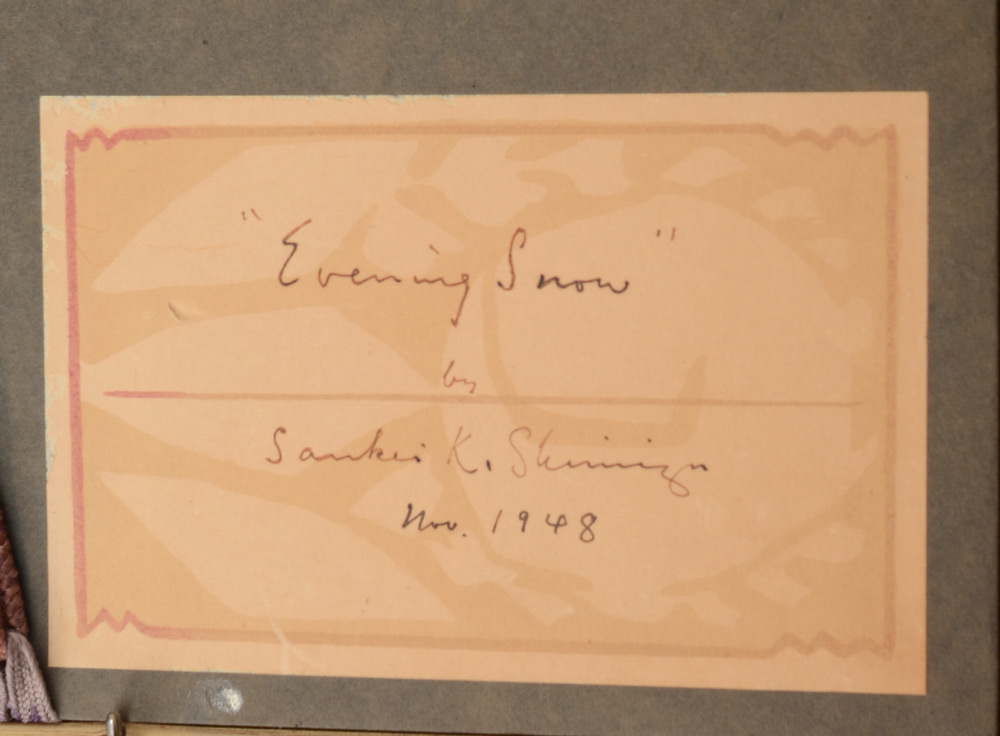 "Evening Snow"
by
Sankei K. Shimizu
Nov. 1948